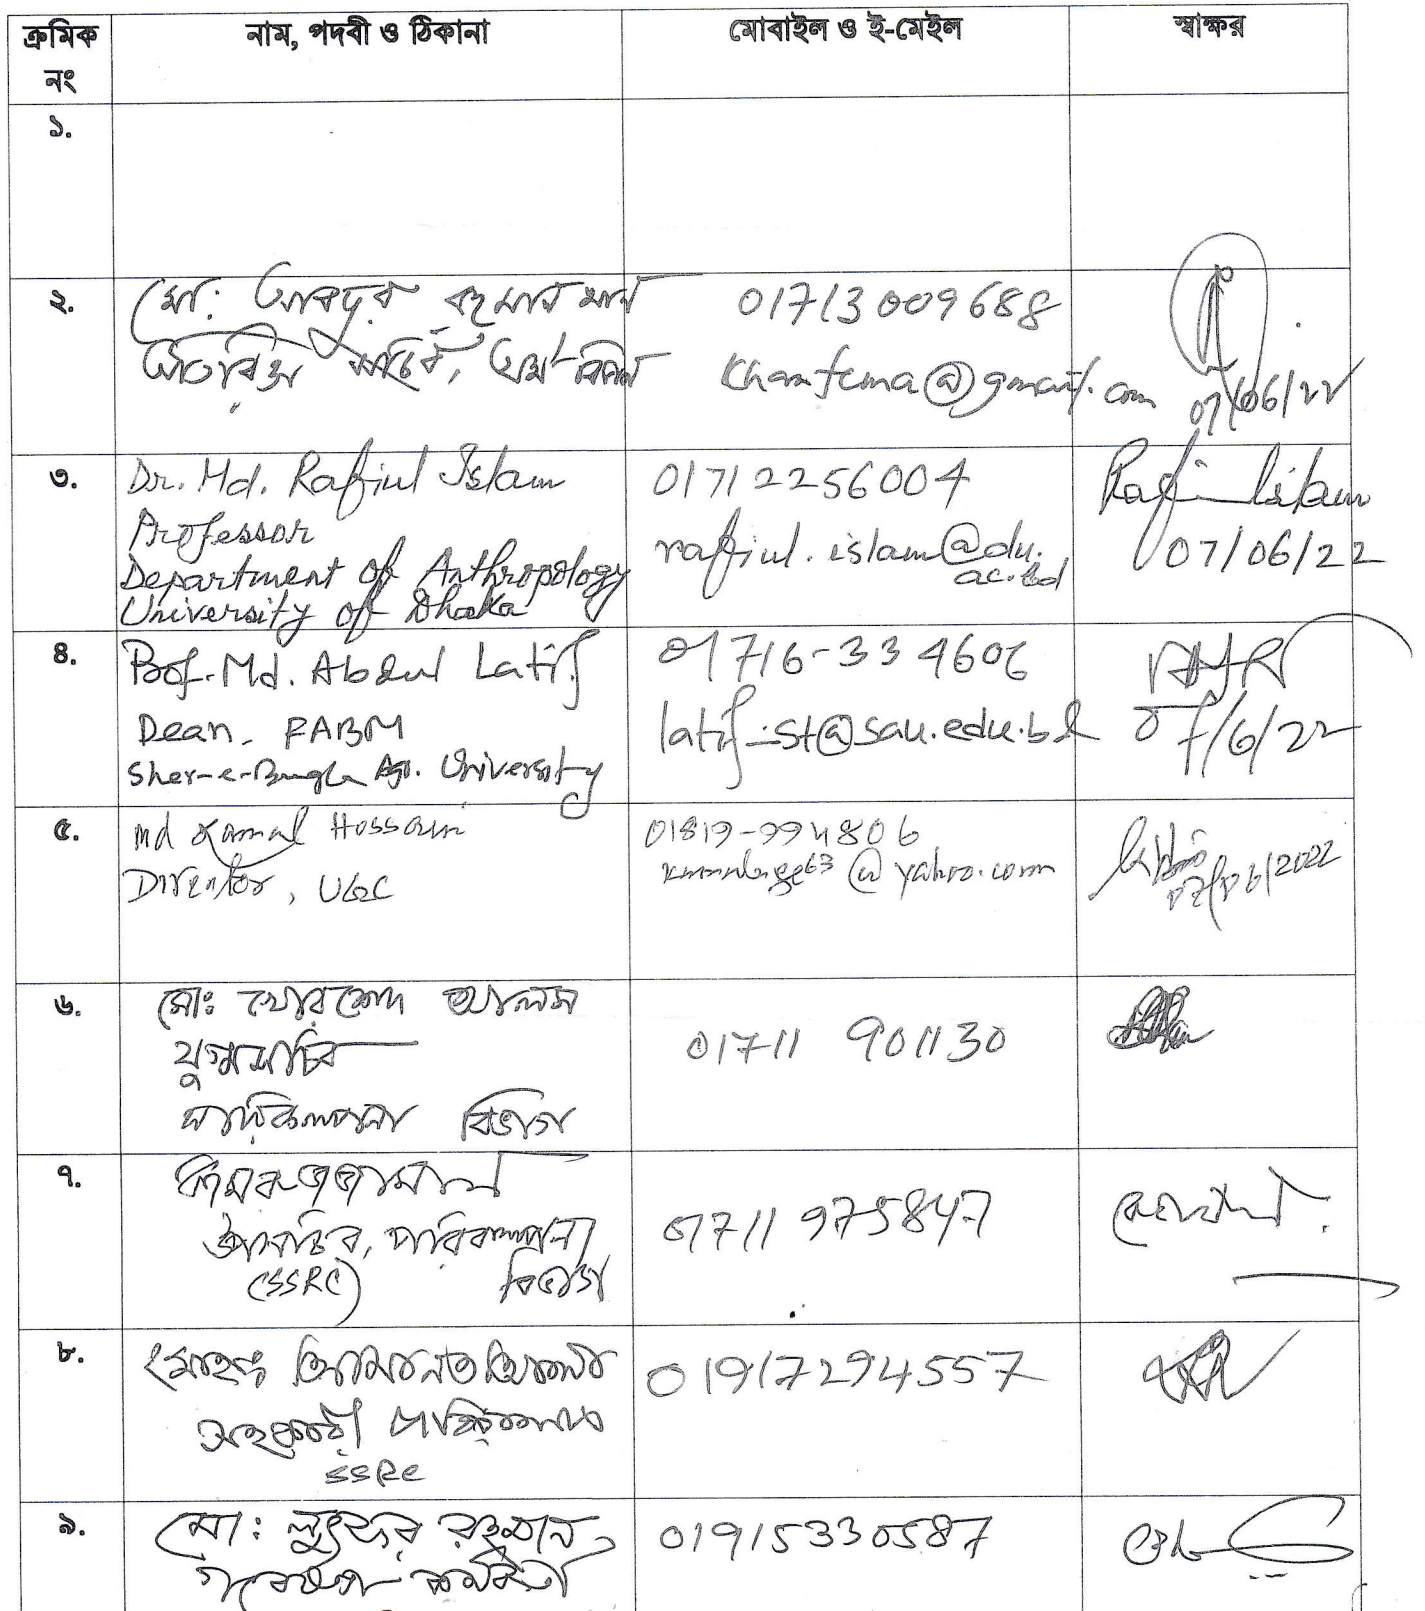 ক্রমিক নং
নাম, পদবী ও ঠিকানা
মোবাইল ও ই-মেইল
স্বাক্ষর
১.
২.
মো: আবদুর রহমান খান
অতিরিক্ত সচিব, অর্থ বিভাগ
01713009688
@gmail.com
07/06/22
৩.
Dr. Md. Rafiul Islam
Professor
Department of Anthropology
University of Dhaka
01712256004
rafiul.islam@du.
ac.bd
07/06/22
৪.
Prof. Md. Abdul Latif
Dean, FABM
Sher-e-Bangla Agr. University
01716-334606
latif-st@sau.edu.bd
07/6/22
৫.
Md Kamal Hossain
Director, UGC
01819-994806
@yahoo.com
07/06/2022
৬.
মোঃ খোরশেদ আলম
যুগ্মসচিব
পরিকল্পনা বিভাগ
01711 901130
৭.
কামরুজ্জামান
উপসচিব, পরিকল্পনা
(SSRC) বিভাগ
01711 975847
৮.
মোহাঃ আমানত
সহকারী পরিচালক
SSRC
01917294557
৯.
মো: লুৎফর রহমান
গবেষণা কর্মকর্তা
01915330587